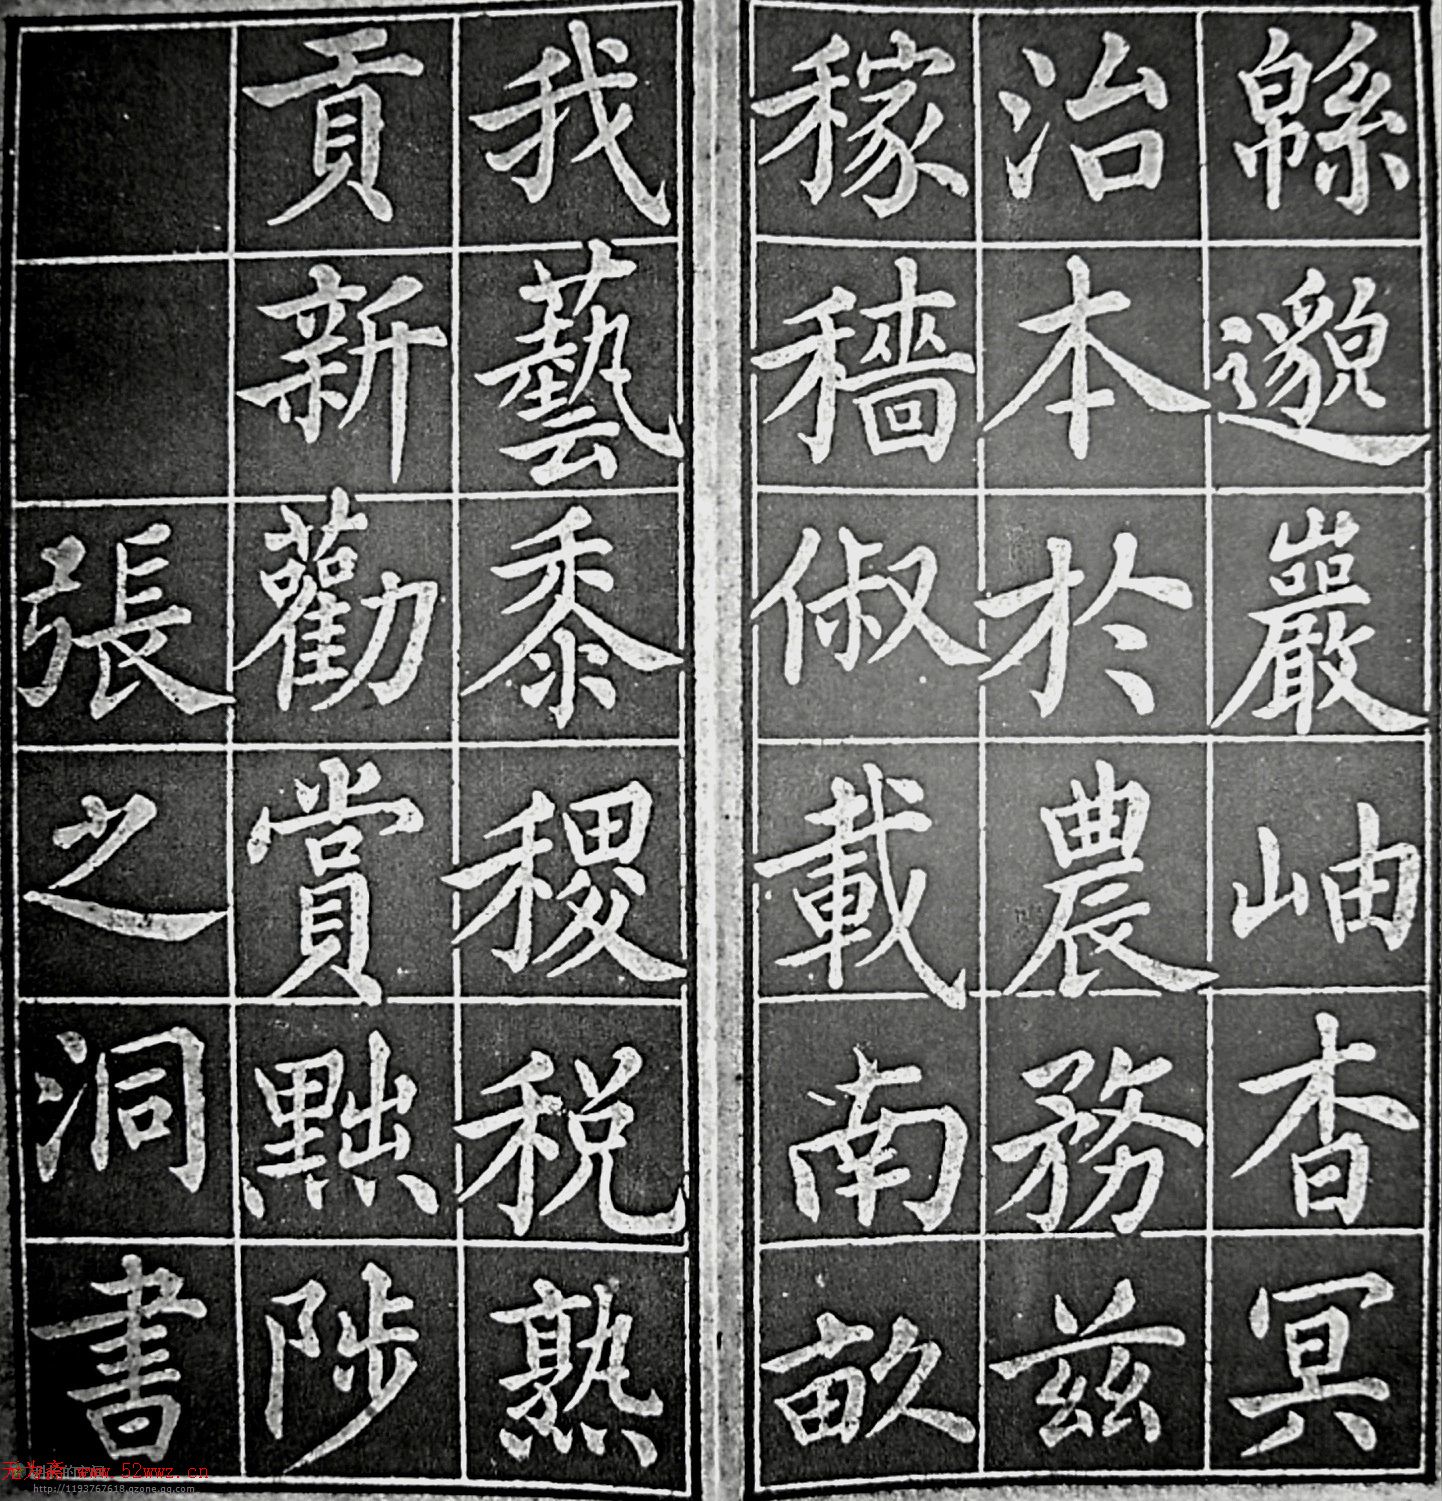 緜邈巖岫杳冥
治本於農務茲
稼穡俶載南畝
我藝黍稷稅熟
貢新勸賞黜陟
張之洞書
www.52wwz.cn
http://1193767618.qzone.qq.com